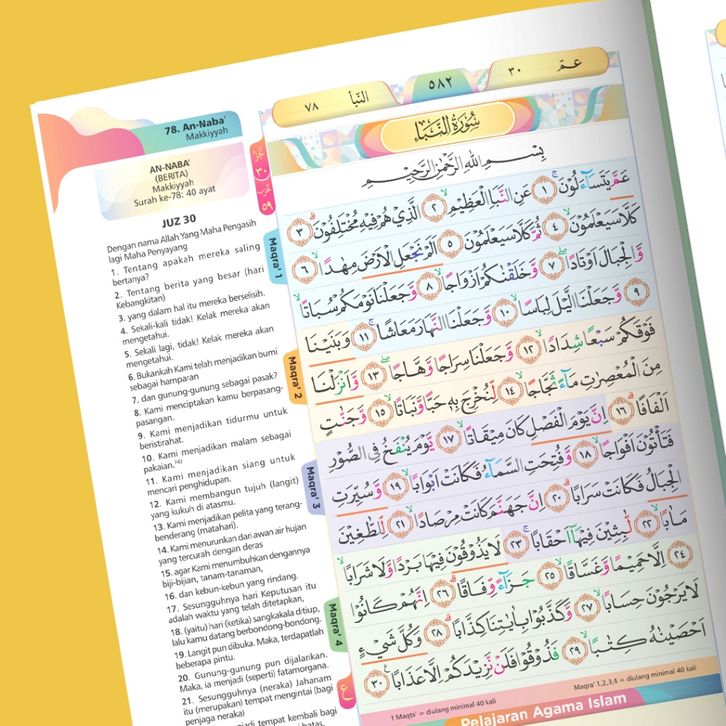 عمّ
٣٠
٥٨٢
النّبأ
٧٨
78. An-Naba'
Makkiyyah
AN-NABA'
(BERITA)
Makkiyyah
Surah ke-78: 40 ayat
JUZ 30
Dengan nama Allah Yang Maha Pengasih
lagi Maha Penyayang
1. Tentang apakah mereka saling
bertanya?
2. Tentang berita yang besar (hari
Kebangkitan)
3. yang dalam hal itu mereka berselisih.
4. Sekali-kali tidak! Kelak mereka akan
mengetahui.
5. Sekali lagi, tidak! Kelak mereka akan
mengetahui.
6. Bukankah Kami telah menjadikan bumi
sebagai hamparan
7. dan gunung-gunung sebagai pasak?
8. Kami menciptakan kamu berpasang-
pasangan.
9. Kami menjadikan tidurmu untuk
beristirahat.
10. Kami menjadikan malam sebagai
pakaian.⁷⁴²
11. Kami menjadikan siang untuk
mencari penghidupan.
12. Kami membangun tujuh (langit)
yang kukuh di atasmu.
13. Kami menjadikan pelita yang terang-
benderang (matahari).
14. Kami menurunkan dari awan air hujan
yang tercurah dengan deras
15. agar Kami menumbuhkan dengannya
biji-bijian, tanam-tanaman,
16. dan kebun-kebun yang rindang.
17. Sesungguhnya hari Keputusan itu
adalah waktu yang telah ditetapkan,
18. (yaitu) hari (ketika) sangkakala ditiup,
lalu kamu datang berbondong-bondong.
19. Langit pun dibuka. Maka, terdapatlah
beberapa pintu.
20. Gunung-gunung pun dijalankan.
Maka, ia menjadi (seperti) fatamorgana.
21. Sesungguhnya (neraka) Jahanam
itu (merupakan) tempat mengintai (bagi
penjaga neraka)
menjadi tempat kembali bagi
الجزء
٣٠
الحزب
٥٩
Maqra' 1
Maqra' 2
Maqra' 3
Maqra' 4
ع
سُوْرَةُ النَّبَأِ
بِسْمِ اللّٰهِ الرَّحْمٰنِ الرَّحِيْمِ
عَمَّ يَتَسَاۤءَلُوْنَۚ ١ عَنِ النَّبَاِ الْعَظِيْمِۙ ٢ الَّذِيْ هُمْ فِيْهِ مُخْتَلِفُوْنَۗ ٣
كَلَّا سَيَعْلَمُوْنَۙ ٤ ثُمَّ كَلَّا سَيَعْلَمُوْنَ ٥ اَلَمْ نَجْعَلِ الْاَرْضَ مِهٰدًاۙ ٦
وَّالْجِبَالَ اَوْتَادًاۖ ٧ وَّخَلَقْنٰكُمْ اَزْوَاجًاۙ ٨ وَّجَعَلْنَا نَوْمَكُمْ سُبَاتًاۙ
٩ وَّجَعَلْنَا الَّيْلَ لِبَاسًاۙ ١٠ وَّجَعَلْنَا النَّهَارَ مَعَاشًاۚ ١١ وَبَنَيْنَا
فَوْقَكُمْ سَبْعًا شِدَادًاۙ ١٢ وَّجَعَلْنَا سِرَاجًا وَّهَّاجًاۖ ١٣ وَّاَنْزَلْنَا
مِنَ الْمُعْصِرٰتِ مَاۤءً ثَجَّاجًاۙ ١٤ لِّنُخْرِجَ بِهٖ حَبًّا وَّنَبَاتًاۙ ١٥ وَّجَنّٰتٍ
اَلْفَافًاۗ ١٦ اِنَّ يَوْمَ الْفَصْلِ كَانَ مِيْقَاتًاۙ ١٧ يَّوْمَ يُنْفَخُ فِى الصُّوْرِ
فَتَأْتُوْنَ اَفْوَاجًاۙ ١٨ وَّفُتِحَتِ السَّمَاۤءُ فَكَانَتْ اَبْوَابًاۙ ١٩ وَّسُيِّرَتِ
الْجِبَالُ فَكَانَتْ سَرَابًاۗ ٢٠ اِنَّ جَهَنَّمَ كَانَتْ مِرْصَادًاۙ ٢١ لِّلطّٰغِيْنَ
مَاٰبًاۙ ٢٢ لّٰبِثِيْنَ فِيْهَآ اَحْقَابًاۚ ٢٣ لَا يَذُوْقُوْنَ فِيْهَا بَرْدًا وَّلَا شَرَابًاۙ
٢٤ اِلَّا حَمِيْمًا وَّغَسَّاقًاۙ ٢٥ جَزَاۤءً وِّفَاقًاۗ ٢٦ اِنَّهُمْ كَانُوْا
لَا يَرْجُوْنَ حِسَابًاۙ ٢٧ وَّكَذَّبُوْا بِاٰيٰتِنَا كِذَّابًاۗ ٢٨ وَكُلَّ شَيْءٍ
اَحْصَيْنٰهُ كِتٰبًاۙ ٢٩ فَذُوْقُوْا فَلَنْ نَّزِيْدَكُمْ اِلَّا عَذَابًاۗ ٣٠
1 Maqta' = diulang minimal 40 kali
Maqra' 1,2,3,4 = diulang minimal 40 kali
Pelajaran Agama Islam